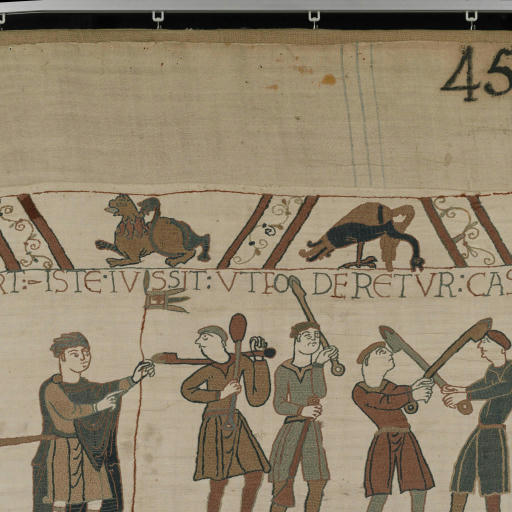 45
RI:-ISTE:IVSSIT:VTFODERETVR:CAS